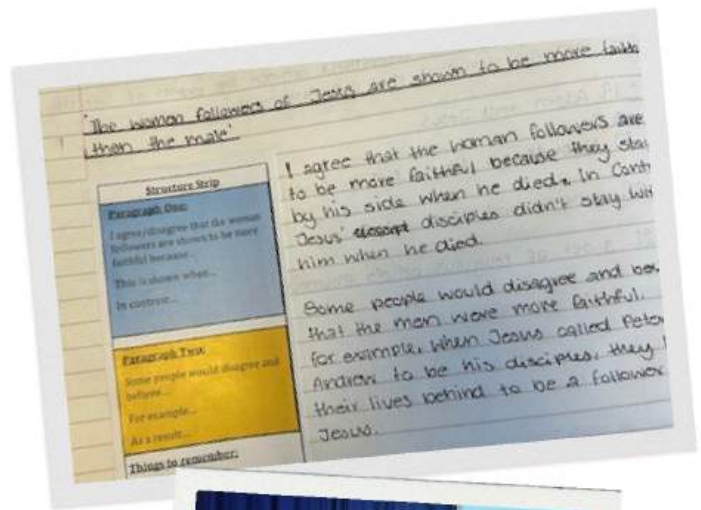 'The women followers of Jesus are shown to be more faith
than the male'
Structure Strip
Paragraph One:
I agree/disagree that the women
followers are shown to be more
faithful because...
This is shown when...
In contrast...
Paragraph Two:
Some people would disagree and
believe...
For example...
As a result...
Things to remember:
I agree that the woman followers are
to be more faithful because they sta
by his side when he died. In Cont
Jesus' disciples didn't stay wi
him when he died.
Some people would disagree and be
that the men were more faithful.
for example, when Jesus called Peter
Andrew to be his disciples, they
their lives behind to be a follower
Jesus.